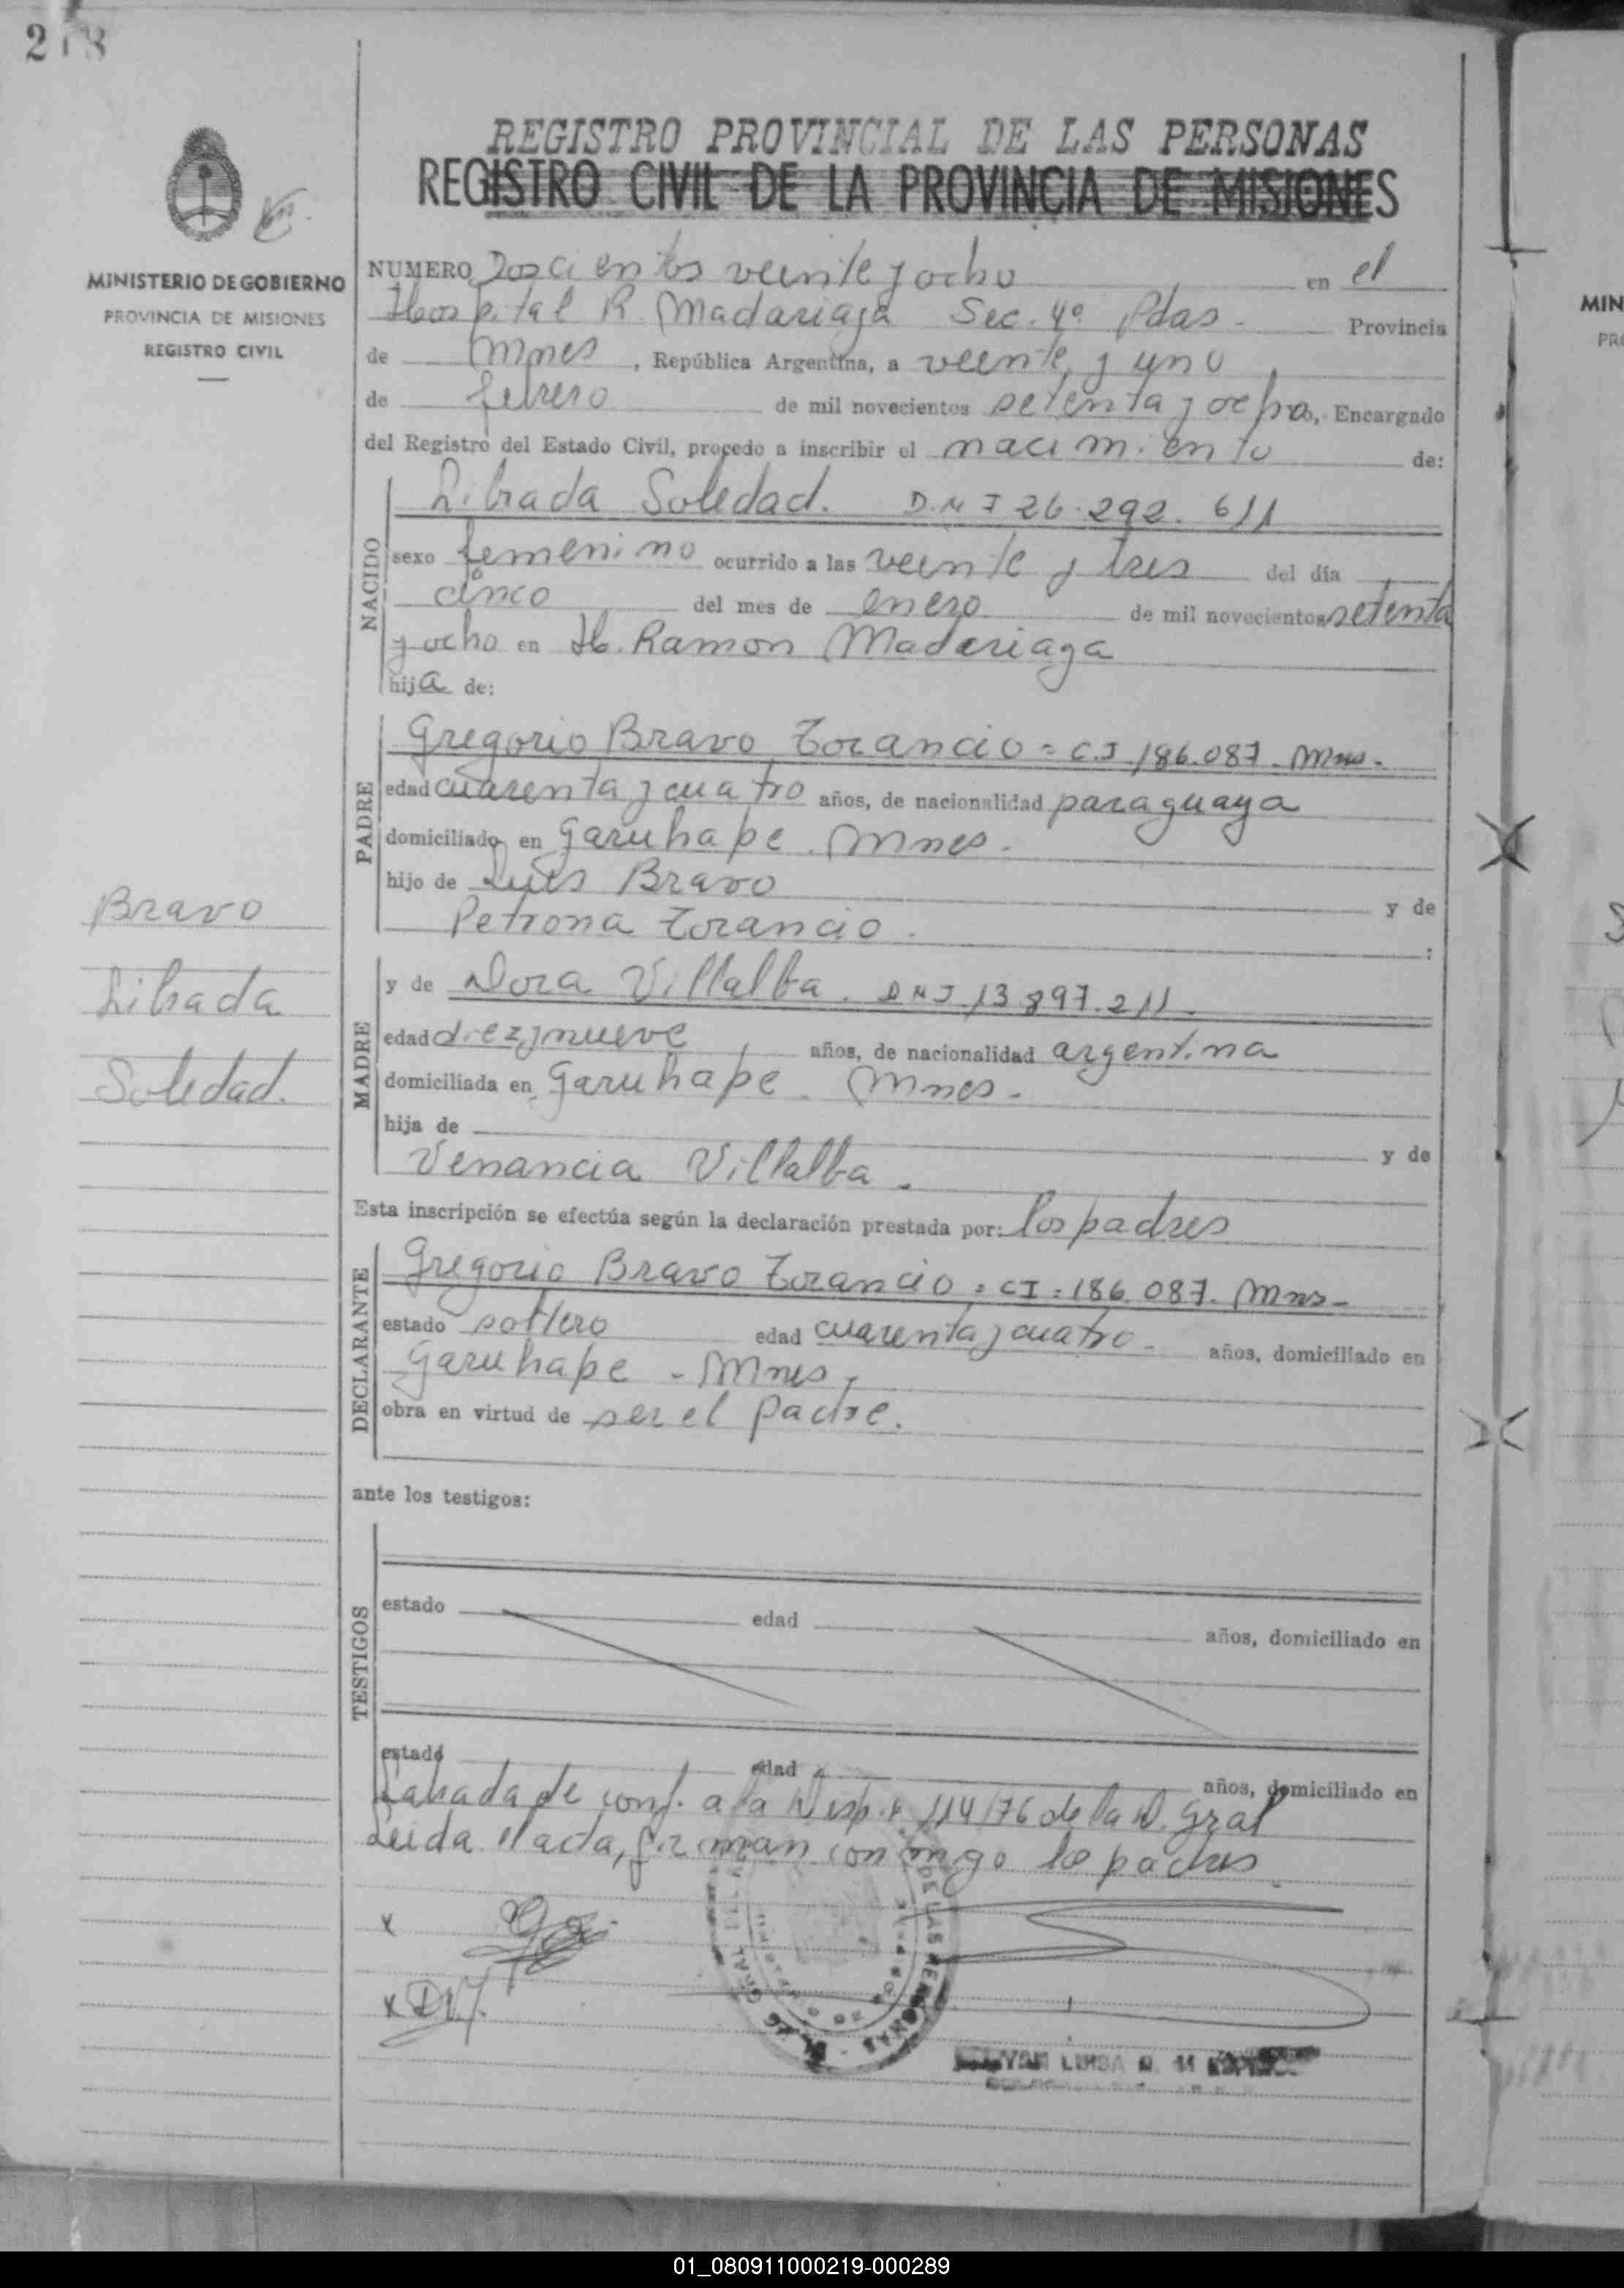 218
REGISTRO PROVINCIAL DE LAS PERSONAS
REGISTRO CIVIL DE LA PROVINCIA DE MISIONES
MINISTERIO DE GOBIERNO
PROVINCIA DE MISIONES
REGISTRO CIVIL
NUMERO Doscientos veinte y ocho en el
Hospital R. Madariaga Sec. 4ª Pdas. Provincia
de Mnes, República Argentina, a veinte y uno
de febrero de mil novecientos setenta y ocho, Encargado
del Registro del Estado Civil, procedo a inscribir el nacimiento de:
NACIDO
Librada Soledad. D.N I 26.292.611
sexo femenino ocurrido a las veinte y tres del día
cinco del mes de enero de mil novecientos setenta
y ocho en H. Ramon Madariaga
hija de:
PADRE
Gregorio Bravo Torancio = C.I. 186.087. Mns.
edad cuarenta y cuatro años, de nacionalidad paraguaya
domiciliado en Garuhape. Mnes.
hijo de Luis Bravo y de
Petrona Torancio. :
Bravo
Librada
Soledad.
MADRE
y de Dora Villalba. DNI. 13.897.211.
edad diez y nueve años, de nacionalidad argentina
domiciliada en Garuhape. Mnes.
hija de y de
Venancia Villalba.
Esta inscripción se efectúa según la declaración prestada por: los padres
DECLARANTE
Gregorio Bravo Torancio = CI = 186.087. Mns.
estado soltero edad cuarenta y cuatro. años, domiciliado en
Garuhape - Mnes,
obra en virtud de ser el padre.
ante los testigos:
TESTIGOS
estado edad años, domiciliado en
estado edad años, domiciliado en
Labada de conf. a la Disp. 114/76 de la D. Gral
Leida el acta, firman conmigo los padres
x
x D.V.
DE LAS PERSONAS
GRAL
MIN
01_080911000219-000289